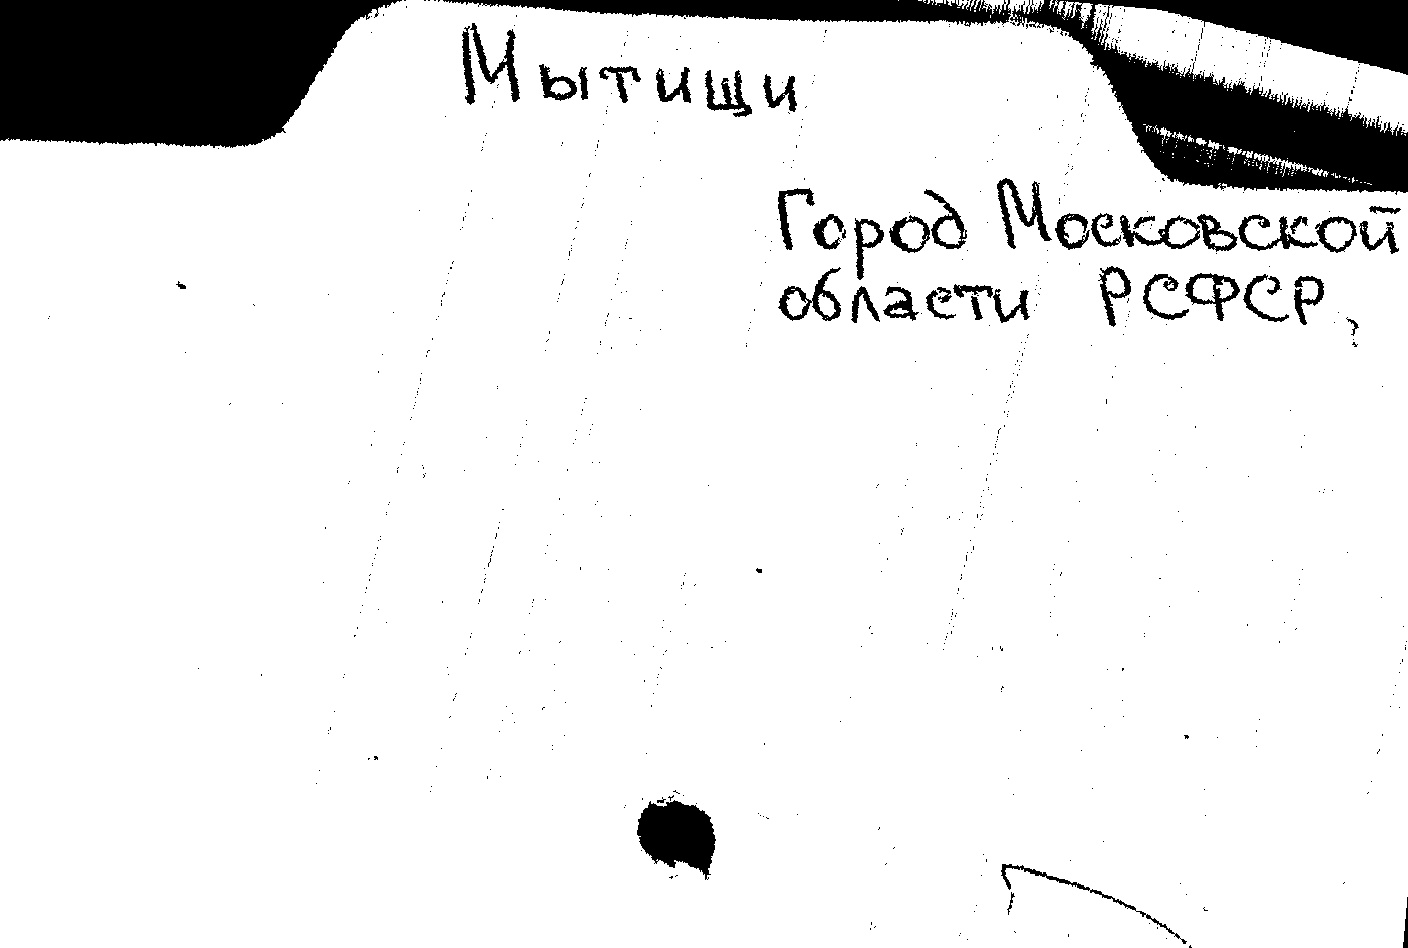 Мытищи
Город Московской
области РСФСР,